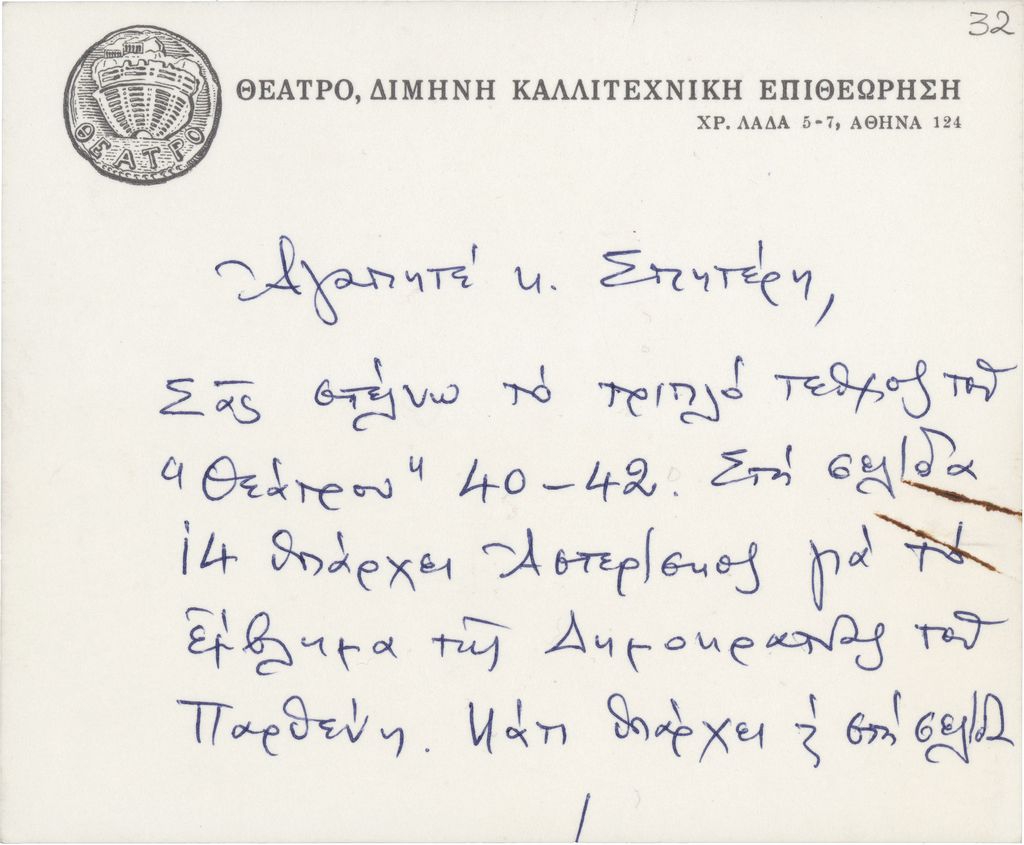 32
ΘΕΑΤΡΟ
ΘΕΑΤΡΟ, ΔΙΜΗΝΗ ΚΑΛΛΙΤΕΧΝΙΚΗ ΕΠΙΘΕΩΡΗΣΗ
ΧΡ. ΛΑΔΑ 5-7, ΑΘΗΝΑ 124
Ἀγαπητέ κ. Σπητέρη,
Σᾶς στέλνω τό τριπλό τεῦχος τοῦ
"Θεάτρου" 40-42. Στή σελίδα
14 ὑπάρχει Ἀστερίσκος γιά τό
ἔμβλημα τῆς Δημοκρατίας τοῦ
Παρθένη. Κάτι ὑπάρχει στή σελίδα